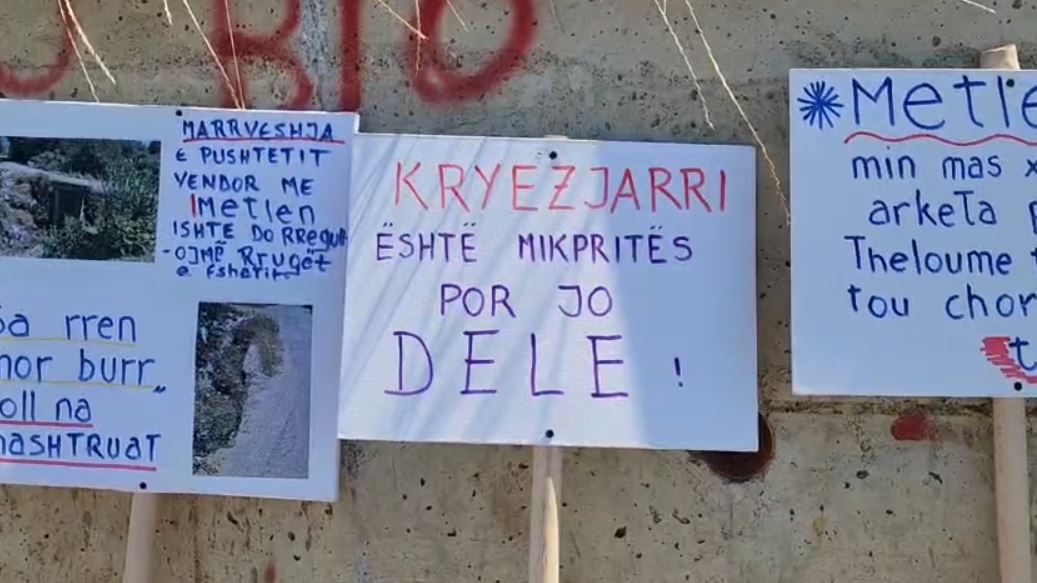 BIO
MARRVESHJA
E PUSHTETIT
VENDOR ME
IMetlen
ISHTE DO RRegull
-OJMË RRugët
e Fshatit
Sa rren
mor burr
soll na
MASHTRUAT
KRYEZJARRI
ËSHTË MIKPRITËS
POR JO
DELE !
Metle
min mas x
arketa p
Theloume t
tou chor
t